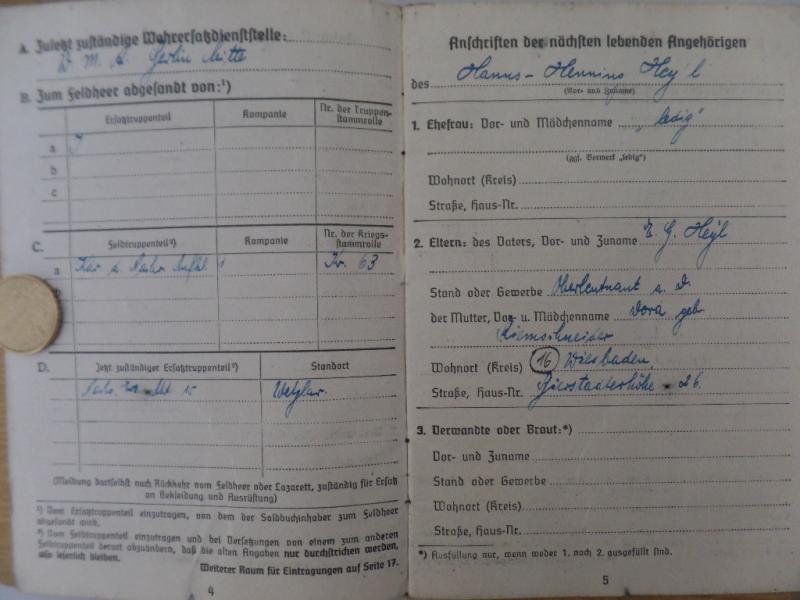 A. Zuletzt zuständige Wehrersatzdienststelle:
W. M. A. Berlin Mitte
B. Zum Feldheer abgesandt von:¹)
Ersatztruppenteil Kompanie Nr. der Truppen-
stammrolle
a
b
c
C. Feldtruppenteil²) Kompanie Nr. der Kriegs-
stammrolle
a Nachr. Aufkl. 1 Kr. 63
D. Jetzt zuständiger Ersatztruppenteil²) Standort
Nachr. 15 Wetzlar.
(Meldung dortselbst nach Rückkehr vom Feldheer oder Lazarett, zuständig für Ersatz
an Bekleidung und Ausrüstung)
¹) Vom Ersatztruppenteil einzutragen, von dem der Soldbuchinhaber zum Feldheer
abgesandt wird.
²) Vom Feldtruppenteil einzutragen und bei Versetzungen von einem zum anderen
Feldtruppenteil derart abzuändern, daß die alten Angaben nur durchstrichen werden,
also leserlich bleiben.
Weiterer Raum für Eintragungen auf Seite 17.
4
Anschriften der nächsten lebenden Angehörigen
des Hanns-Henning Heyl
(Vor- und Zuname)
1. Ehefrau: Vor- und Mädchenname „ledig"
(ggf. Vermerk „ledig")
Wohnort (Kreis)
Straße, Haus-Nr.
2. Eltern: des Vaters, Vor- und Zuname E. G. Heyl
Stand oder Gewerbe Oberleutnant a. D.
der Mutter, Vor- u. Mädchenname Dora geb.
Riemschneider
Wohnort (Kreis) 16 Wiesbaden,
Straße, Haus-Nr. Bierstadterhöhe 26.
3. Verwandte oder Braut:*)
Vor- und Zuname
Stand oder Gewerbe
Wohnort (Kreis)
Straße, Haus-Nr.
*) Ausfüllung nur, wenn weder 1. noch 2. ausgefüllt sind.
5